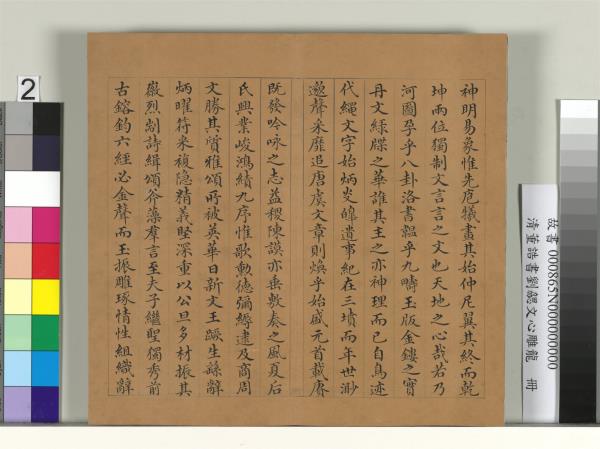 神明易象惟先庖犧畫其始仲尼翼其終而乾
坤兩位獨制文言言之文也天地之心哉若乃
河圖孕乎八卦洛書韞乎九疇玉版金鏤之寶
丹文綠牒之華誰其主之亦神理而已自鳥迹
代繩文字始炳炎皥遺事紀在三墳而年世渺
邈聲采靡追唐虞文章則煥乎始盛元首載賡
既發吟咏之志益稷陳謨亦垂敷奏之風夏后
氏興業峻鴻績九序惟歌勳德彌縟逮及商周
文勝其質雅頌所被英華日新文王蹶生繇辭
炳曜符采複隱精義堅深重以公旦多材振其
徽烈剬詩緝頌斧藻羣言至夫子繼聖獨秀前
古鎔鈞六經必金聲而玉振雕琢情性組織辭
2
故書 000865N000000000
清董誥書劉勰文心雕龍 冊